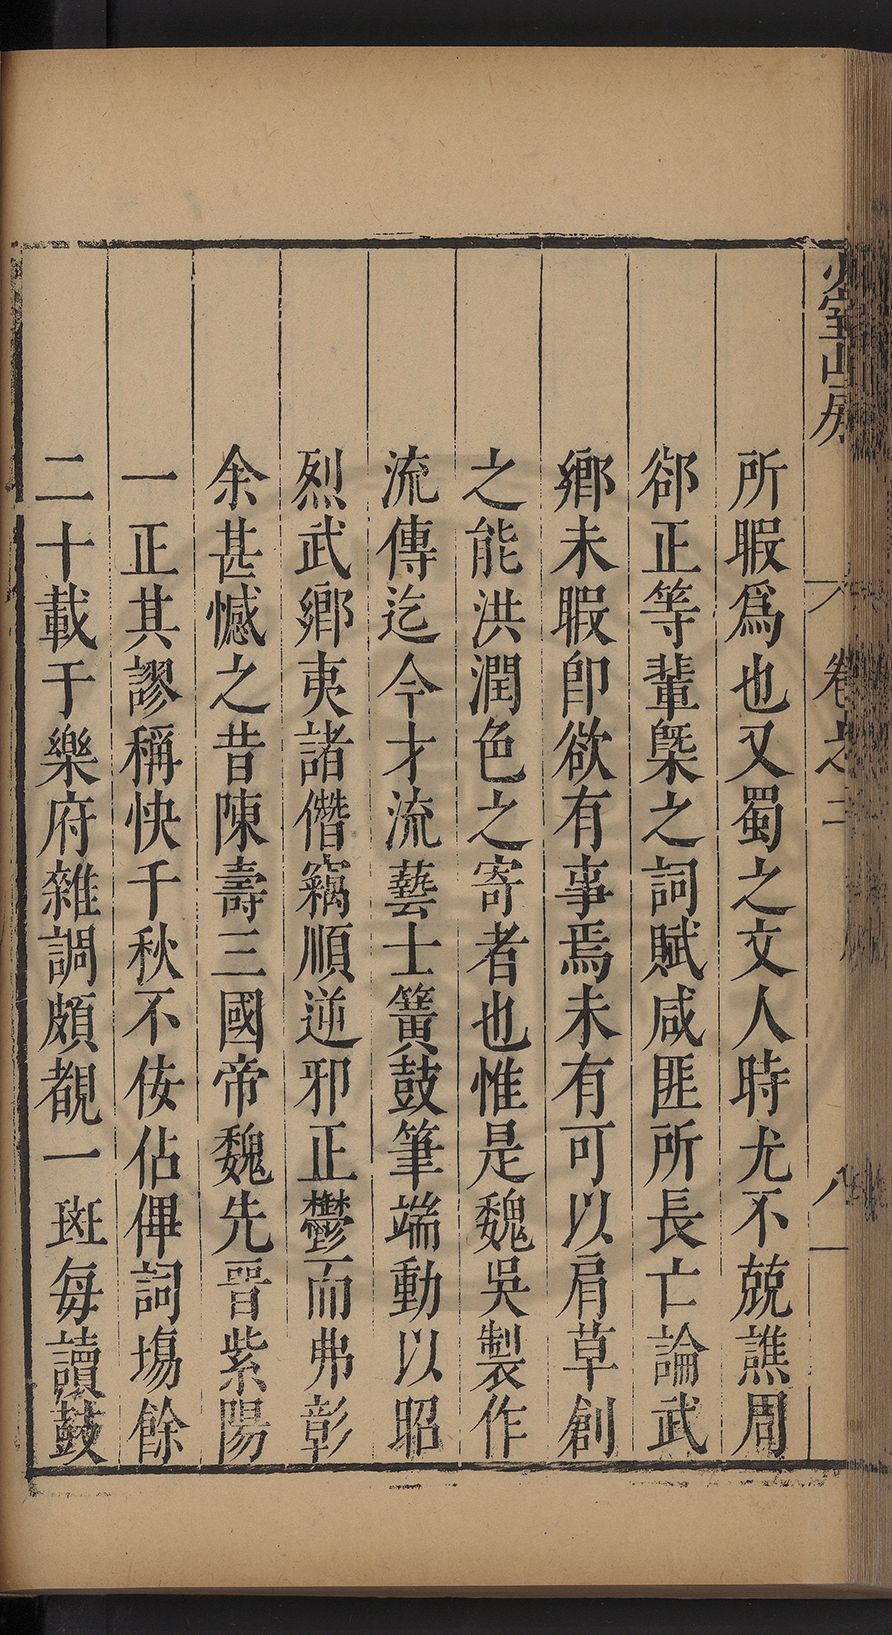 少室山房
卷之二
八
所暇爲也又蜀之文人時尤不兢譙周
郤正等輩槩之詞賦咸匪所長亡論武
鄉未暇卽欲有事焉未有可以肩草創
之能洪潤色之寄者也惟是魏吳製作
流傳迄今才流藝士簧鼓筆端動以昭
烈武鄉夷諸僭竊順逆邪正鬱而弗彰
余甚憾之昔陳壽三國帝魏先晉紫陽
一正其謬稱快千秋不佞佔俾詞塲餘
二十載于樂府雜調頗覩一斑每讀鼓